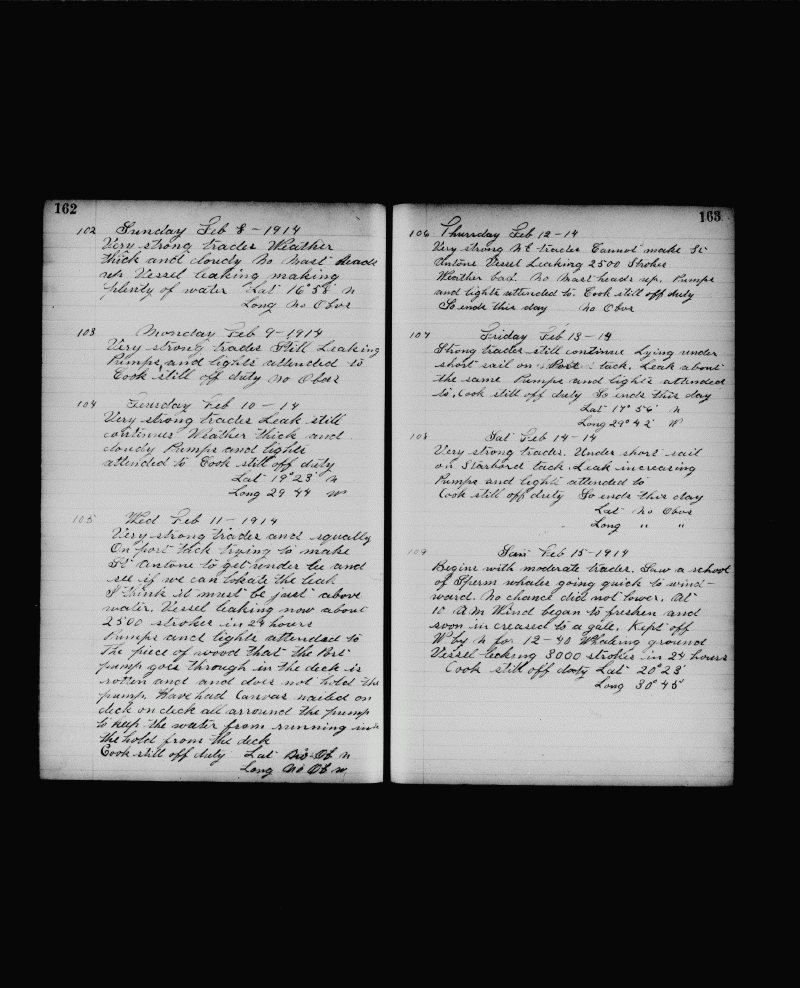 162
102 Sunday Feb 8 - 1914
Very strong trades Weather
thick and cloudy No Mast heads
up. Vessel leaking making
plenty of water Lat 16°58' N
Long No Obos
103 Monday Feb 9 - 1914
Very strong trades Still Leaking
Pumps and lights attended to
Cook still off duty No Obos
104 Teusday Feb 10 - 14
Very strong trades Leak still
continues Weather thick and
cloudy Pumps and lights
attended to Cook still off duty
Lat 19°23' N
Long 29 44 W
105 Wed Feb 11 - 1914
Very strong trades and squally
On port tack trying to make
St Antone to get under lee and
see if we can lokate the leak
I think it must be just above
water. Vessel leaking now about
2500 strokes in 24 hours
Pumps and lights attended to
The piece of wood that the Port
pump goes through in the deck is
rotten and and does not hold the
pump. Have had canvas nailed on
deck on deck all arround the pump
to keep the water from running in
the hold from the deck
Cook still off duty Lat No Ob N
Long No Ob W
163
106 Thursday Feb 12 - 14
Very strong N E trades Cannot make St
Antone Vessel Leaking 2500 Strokes
Weather bad. No Mast heads up. Pumps
and lights attended to. Cook still off duty
So ends this day No Obos
107 Friday Feb 13 - 14
Strong trades still continue Lying under
short sail on Port tack. Leak about
the same Pumps and lights attended
to. Cook still off duty So ends this day
Lat 17°54' N
Long 29°42' W
108 Sat Feb 14 - 14
Very strong trades. Under short sail
on Starbord tack. Leak increasing
Pumps and lights attended to
Cook still off duty So ends this day
Lat No Obos
Long " "
109 Sun Feb 15 - 1914
Begins with moderate trades. Saw a school
of Sperm whales going quick to wind-
ward. No chance did not lower. At
10 A.M Wind began to freshen and
soon in creased to a gale. Kept off
W by N for 12-40 Whaleing ground
Vessel leeking 3000 strokes in 24 hours
Cook still off duty Lat 20°23'
Long 30°45'